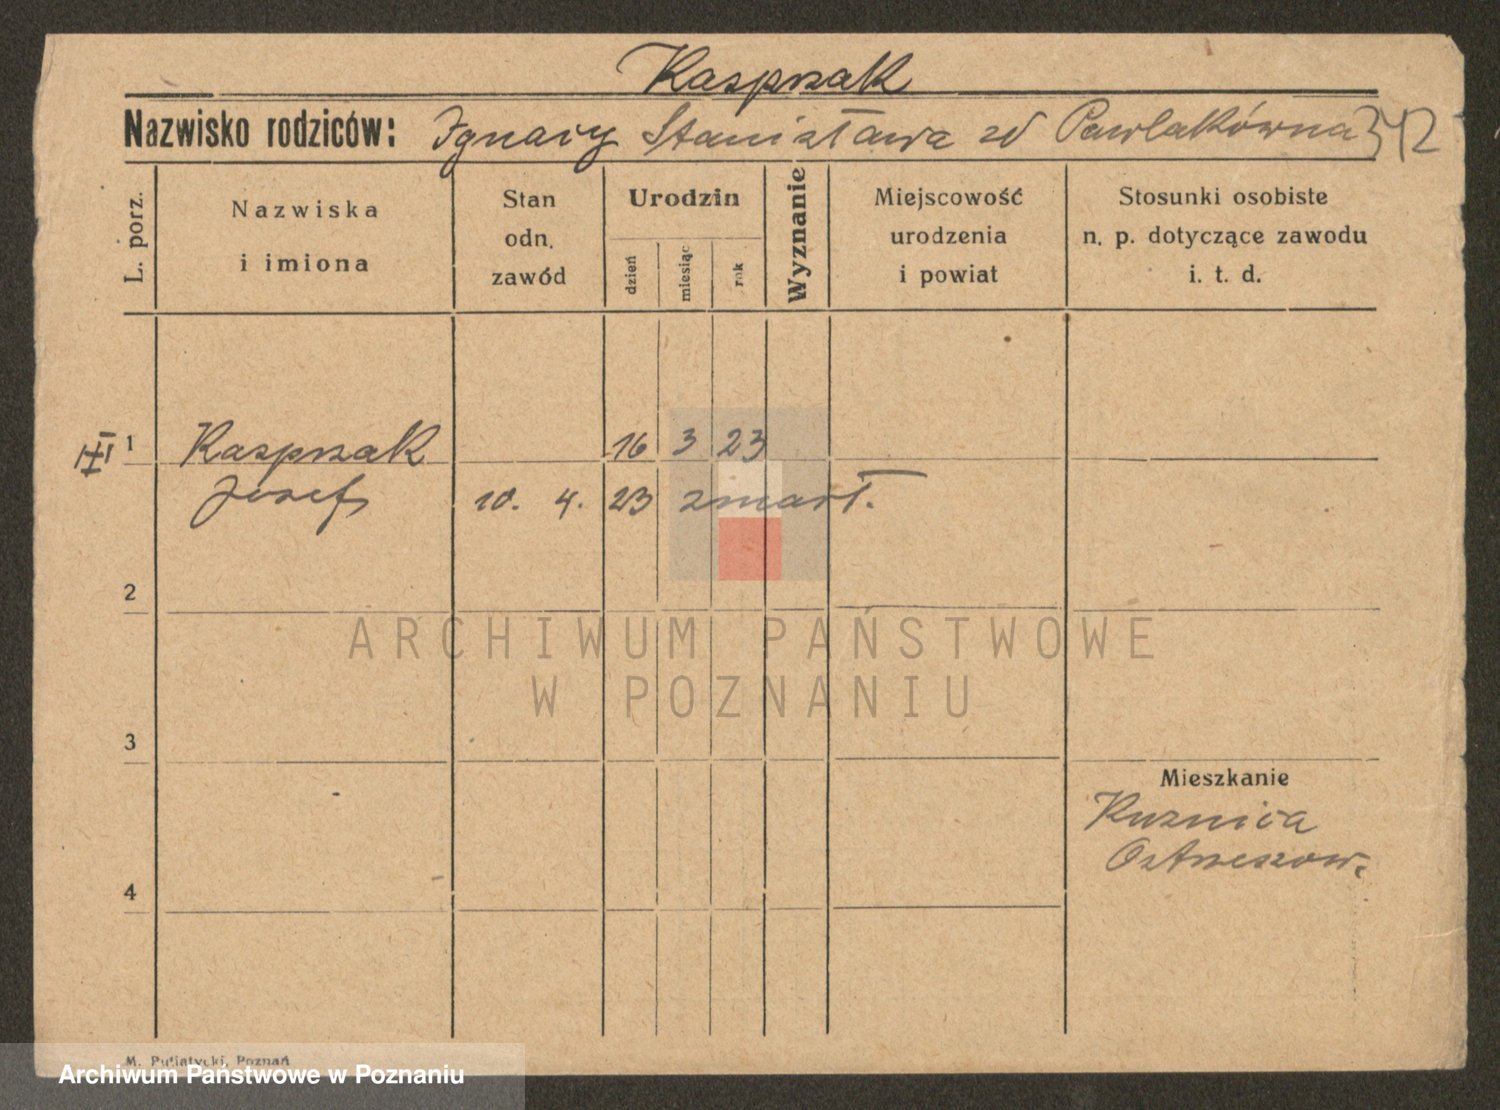 Kasprzak
Nazwisko rodziców: Ignacy Stanisława zd Pawlakówna 342
L. porz.
Nazwiska
i imiona
Stan
odn.
zawód
Urodzin
dzień
miesiąc
rok
Wyznanie
Miejscowość
urodzenia
i powiat
Stosunki osobiste
n. p. dotyczące zawodu
i. t. d.
1 Kasprzak 16 3 23
Józef 10. 4. 23 zmarł.
2
ARCHIWUM PAŃSTWOWE
W POZNANIU
3
Mieszkanie
Kuznica
Ostrzeszow.
4
M. Putiatycki, Poznań
Archiwum Państwowe w Poznaniu